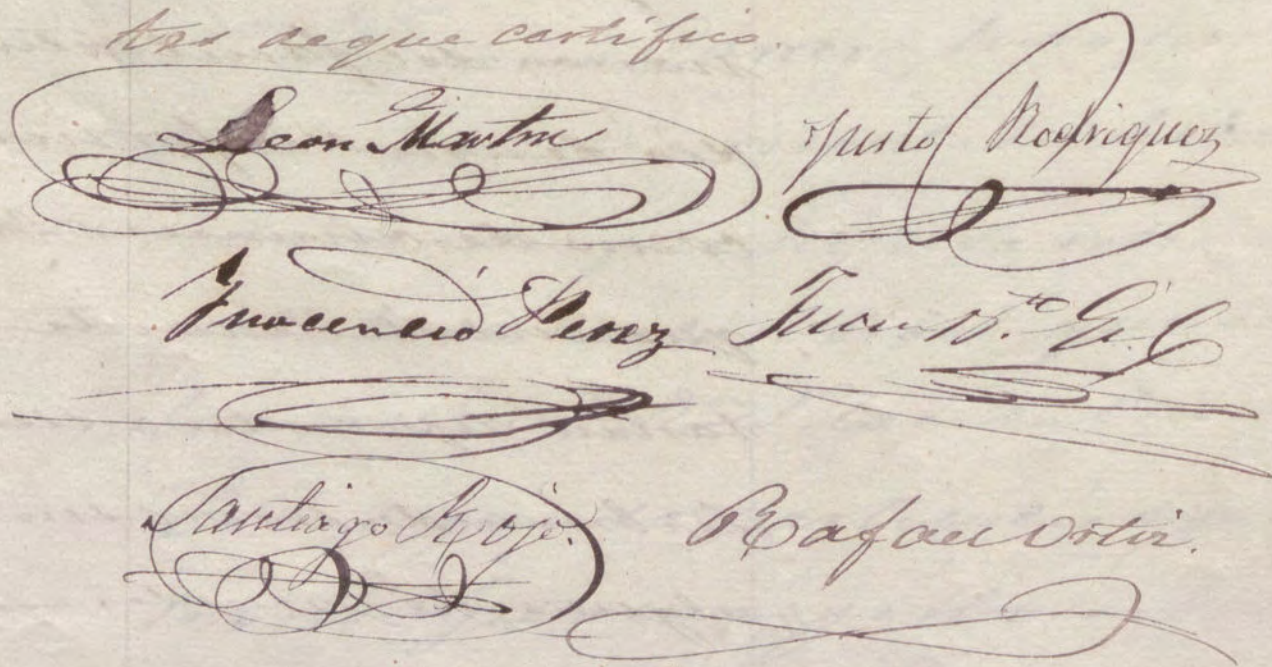 tos de que certifico.
Leon Martin Justo Rodriguez
Ynocencio Perez Juan Gil
Santiago Rojo. Rafael Ortiz.